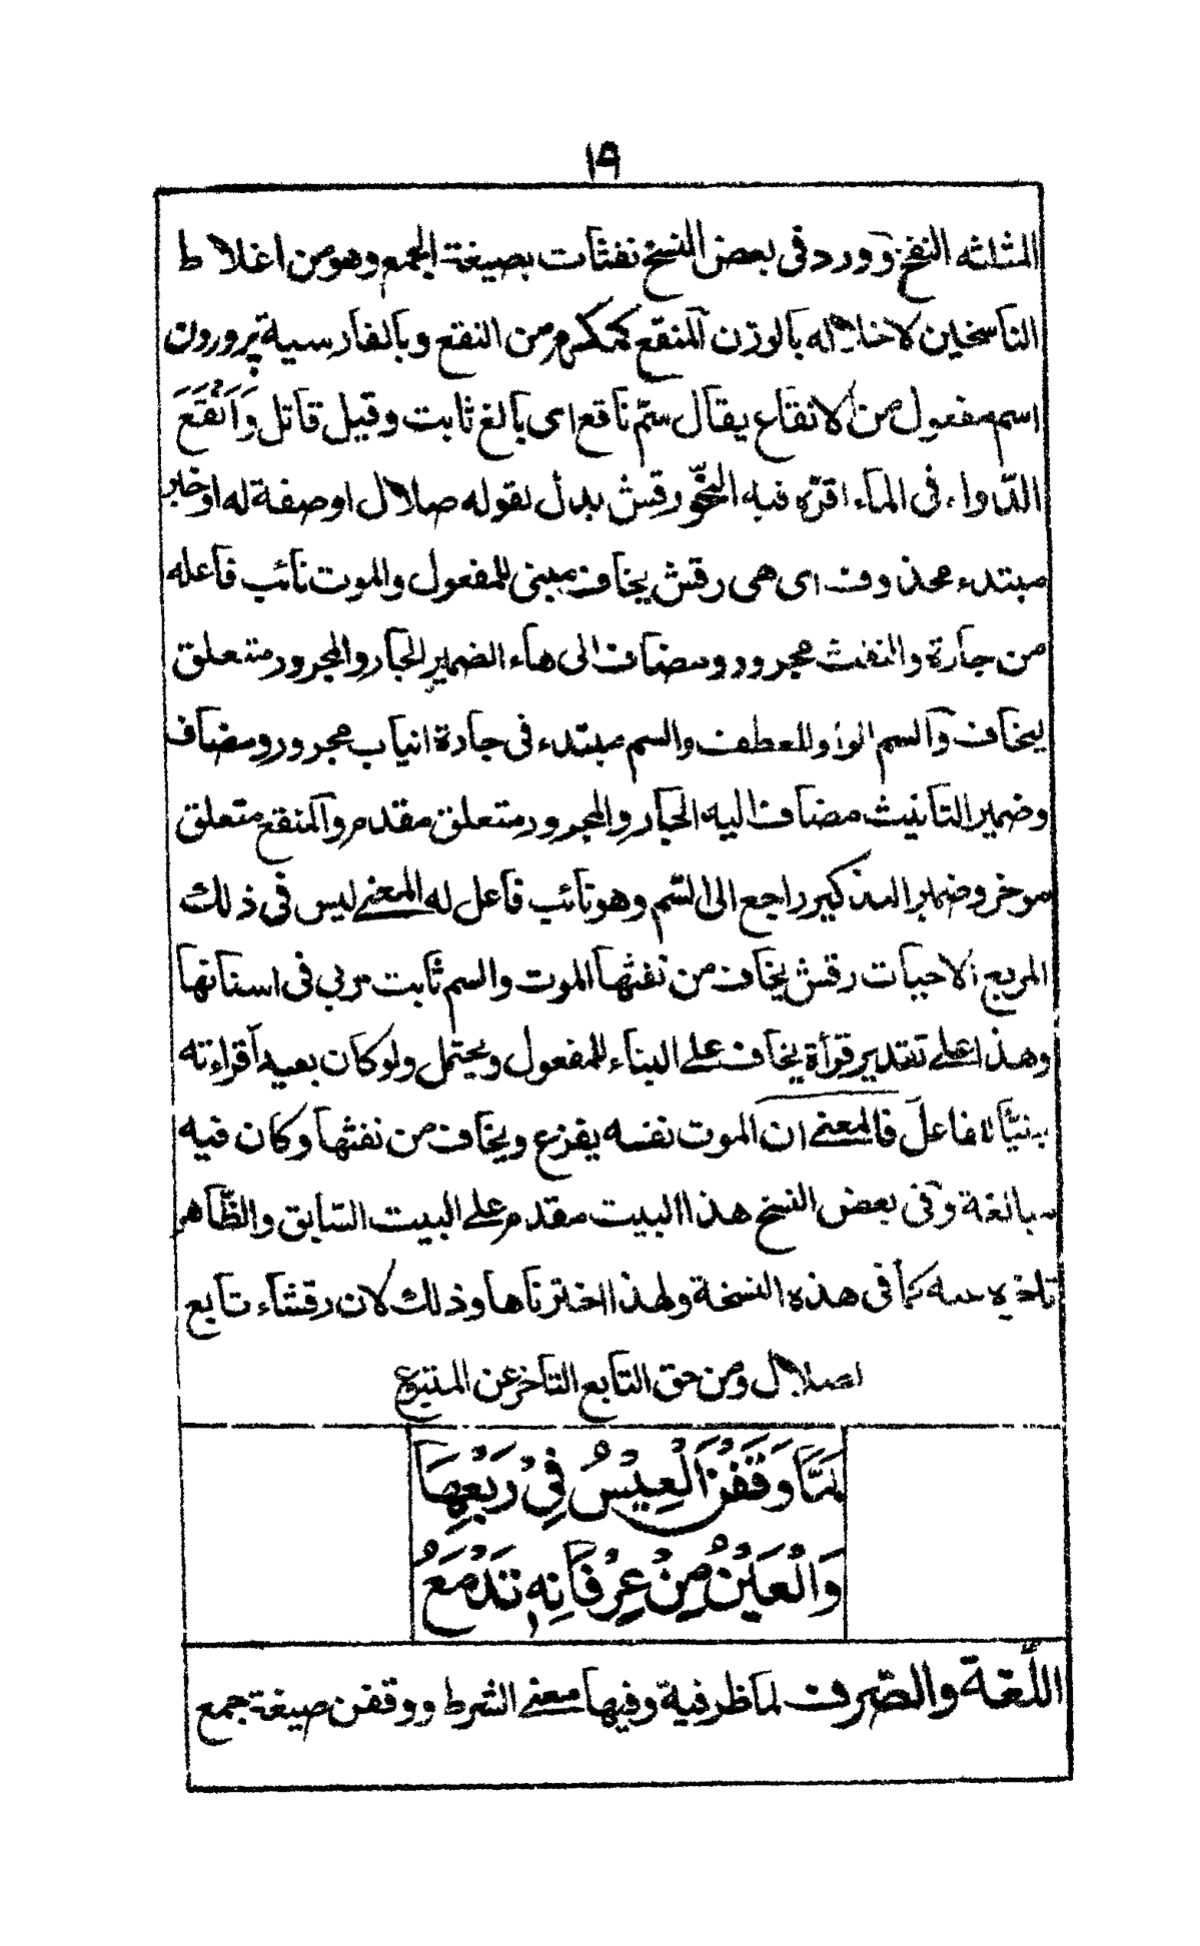 ١٩
المثلثه النفخ وورد فى بعض النسخ نفثات بصيغة الجمع وهو من اغلاط
الناسخين لاخلاله بالوزن المنقع كمكرم من النقع وبالفارسية پروردن
اسم مفعول من الانقاع يقال سمّ ناقع اى بالغ ثابت وقيل قاتل وَاَنْقَعَ
الدّواء فى الماء اقرّه فيه النحو رقش بدل لقوله صلال او صفة له او خبر
مبتدء محذوف اى هى رقش يخاف مبنى للمفعول والموت نائب فاعله
من جارة والنفث مجرور ومضاف الى هاء الضمير الجار والمجرور متعلق
ليخاف والسم الواو للعطف والسم مبتدء فى جارة انياب مجرور ومضاف
وضمير التانيث مضاف اليه الجار والمجرور متعلق مقدم والمنقع متعلق
موخر وضمير المذكير راجع الى السّم وهو نائب فاعل له المعنى ليس فى ذلك
المربع الا حيات رقش يخاف من نفثها الموت والسم ثابت مربى فى اسنانها
وهذا على تقدير قرأة يخاف على البناء للمفعول ويحتمل ولو كان بعيدا قراءته
بنيّا لفاعل فالمعنى ان الموت نفسه يفزع ويخاف من نفثها وكان فيه
مبالغة وفى بعض النسخ هذا البيت مقدم على البيت السّابق والظّاهر
تاخيره عنه كما فى هذه النسخة ولهذا اخترناها وذلك لان رقشاء تابع
لصلال ومن حق التابع التاخر عن المتبوع
لَمَّا وَقَفْنَ الْعِيْسُ فِيْ رَبْعِهَا
وَالْعَيْنُ مِنْ عِرْفَانِهٖ تَدْمَعُ
اللّغة والصّرف لما ظرفية وفيها معنى الشرط ووقفن صيغة جمع